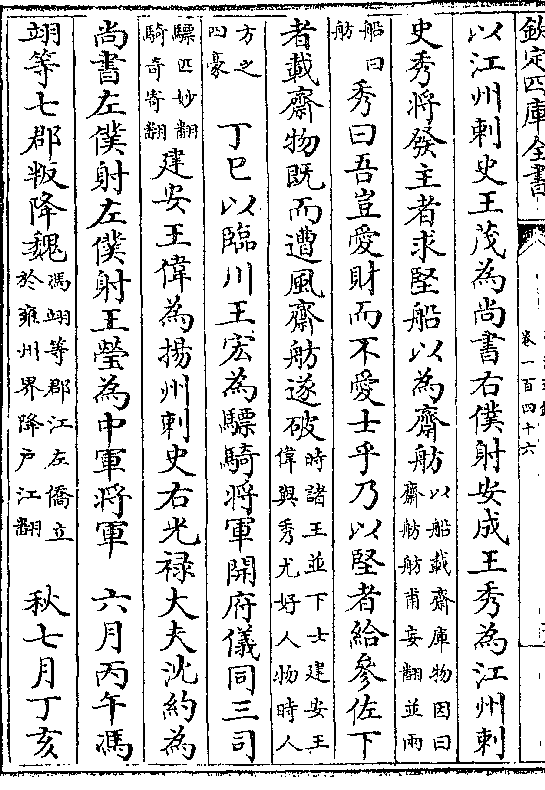 欽定四庫全書
卷一百四十六
以江州刺史王茂為尚書右僕射安成王秀為江州刺
史秀將發主者求堅船以為齋舫以船載齋庫物因曰齋舫舫甫妄翻並兩
船曰舫秀曰吾豈愛財而不愛士乎乃以堅者給參佐下
者載齋物既而遭風齋舫遂破時諸王並下士建安王偉與秀尤好人物時人
方之四豪丁巳以臨川王宏為驃騎將軍開府儀同三司
驃匹妙翻騎奇寄翻建安王偉為揚州刺史右光禄大夫沈約為
尚書左僕射左僕射王瑩為中軍將軍 六月丙午馮
翊等七郡叛降魏馮翊等郡江左僑立於雍州界降户江翻 秋七月丁亥